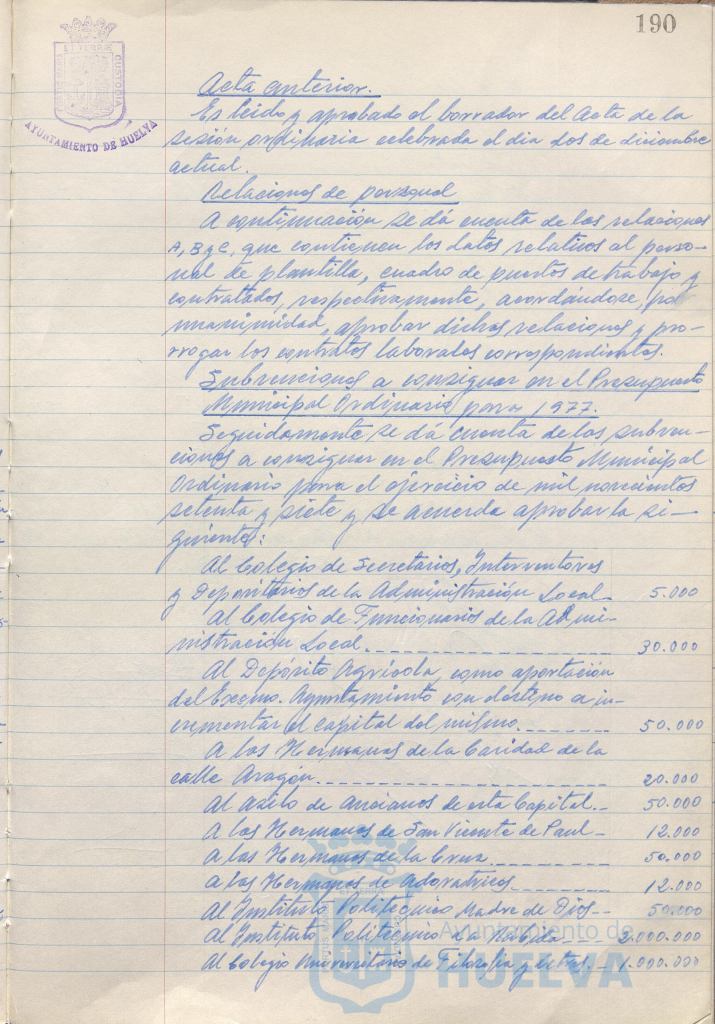 190
AYUNTAMIENTO DE HUELVA
Acta anterior.
Es leido y aprobado el borrador del Acta de la
sesión ordinaria celebrada el dia dos de diciembre
actual.
Relaciones de personal
A continuación se dá cuenta de las relaciones
A, B y C, que contienen los datos relativos al perso-
nal de plantilla, cuadro de puestos de trabajo y
contratados, respectivamente, acordándose, por
unanimidad, aprobar dichas relaciones y pro-
rrogar los contratos laborales correspondientes.
Subvenciones a consignar en el Presupuesto
Municipal Ordinario para 1977.
Seguidamente se dá cuenta de las subven-
ciones a consignar en el Presupuesto Municipal
Ordinario para el ejercicio de mil novecientos
setenta y siete y se acuerda aprobar la si-
guientes:
Al Colegio de Secretarios, Interventores
y Depositarios de la Administración Local- 5.000
Al Colegio de Funcionarios de la Admi-
nistración Local. 30.000
Al Depósito Agrícola, como aportación
del Excmo. Ayuntamiento con destino a in-
crementar el capital del mismo. 50.000
A las Hermanas de la Caridad de la
calle Aragón. 20.000
Al Asilo de Ancianos de esta Capital.- 50.000
A las Hermanas de San Vicente de Paul- 12.000
A las Hermanas de la Cruz. 50.000
A las Hermanas de Adoratrices 12.000
Al Instituto Politécnico Madre de Dios-- 50.000
Al Instituto Politécnico La Rábida 2.000.000
Al Colegio Universitario de Filosofía y Letras.- 1.000.000
Ayuntamiento de
HUELVA